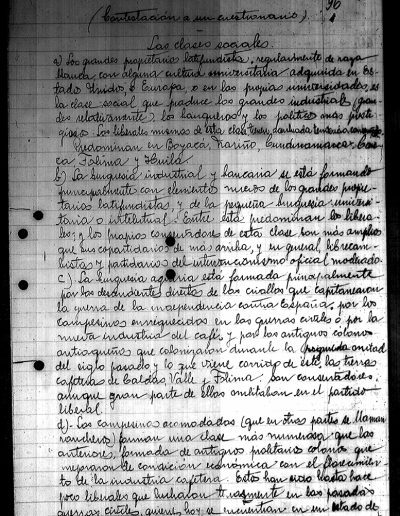 96
(Contestación a un cuestionario)
Las clases sociales.
a) Los grandes propietarios latifundistas, regularmente de raza
blanca, con alguna cultura universitaria adquirida en Es-
tados Unidos, o Europa, o en las propias universidades, es
la clase social que produce los grandes industriales (gran-
des relativamente), los banqueros y los políticos más presti-
giosos. Los liberales mismos de esta clase tienen
Predominan en Boyacá, Nariño, Cundinamarca, Cau-
ca, Tolima y Huila.
b) La burguesía industrial y bancaria se está formando
principalmente con elementos nuevos de los grandes propie-
tarios latifundistas, y de la pequeña burguesía universi-
taria o intelectual. Entre esta predominan los libera-
les; y los propios conservadores de esta clase son más amplios
que sus copartidarios de más arriba, y en general, librecam-
bistas y partidarios del intervencionismo oficial moderado.
c) La burguesía agraria está formada principalmente
por los descendientes directos de los criollos que capitanearon
la guerra de la independencia contra España, por los
campesinos enriquecidos en las guerras civiles o por la
nueva industria del café, y por los antiguos colonos
antioqueños que colonizaron durante la segunda mitad
del siglo pasado y lo que viene corrido de este, las tierras
cafeteras de Caldas, Valle y Tolima. Son conservadores,
aunque gran parte de ellos militaban en el partido
liberal.
d) Los campesinos acomodados (que en otras partes se llaman
rancheros) forman una clase más numerosa que las
anteriores, formada de antiguos colonos que
mejoraron de condición económica con el florecimien-
to de la industria cafetera. Estos han sido hasta hace
poco liberales que lucharon en las pasadas
guerras civiles, quienes hoy se encuentran en un estado de